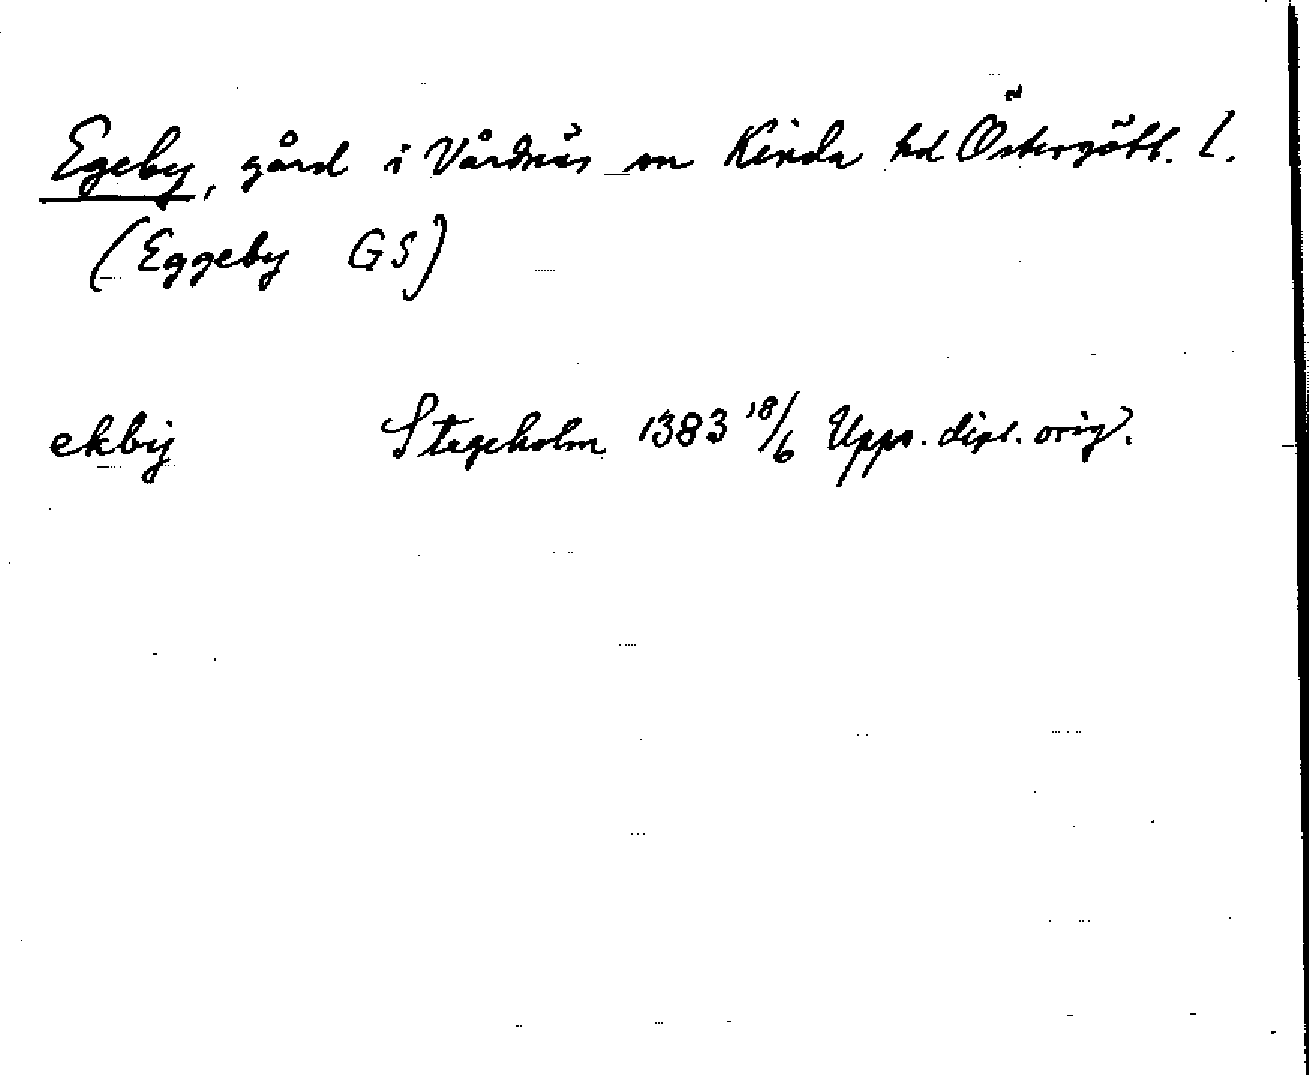 Egeby, gård i Vårdnäs sn Kinda hd Östergötl. l.
(Eggeby GS)
ekbij Stegeholm 1383 18/6 Upps. dipl. orig.